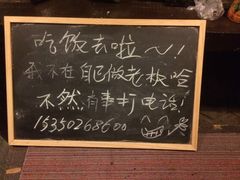 吃饭去啦～！
我不在自己做老板哈
不然有事打电话！
15350268600